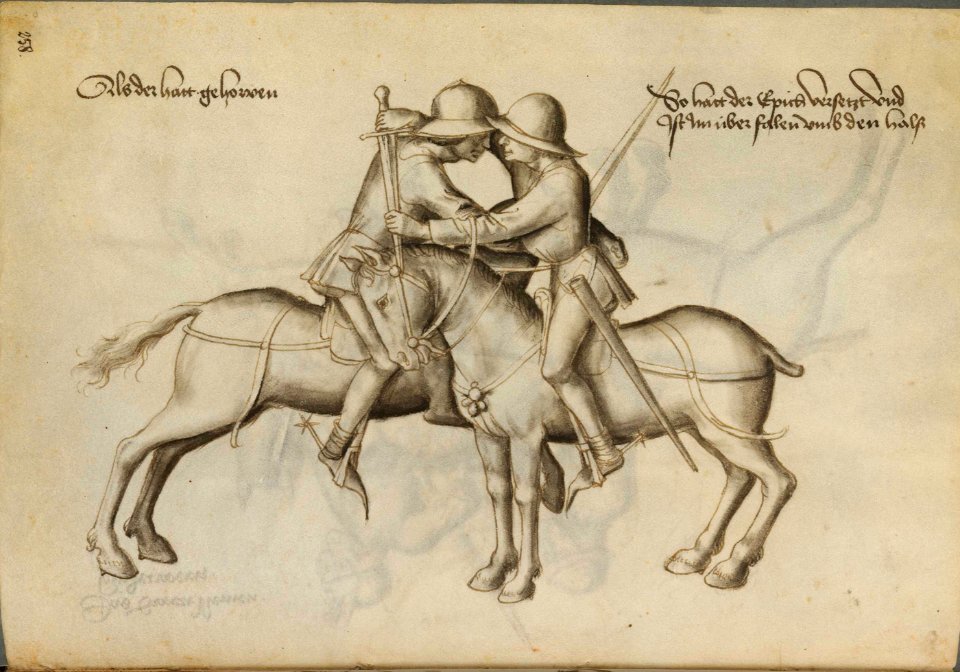 258
Als der hatt gehowen
So hatt der Epich versetzt vnd
Ist im über falen vmb den hals